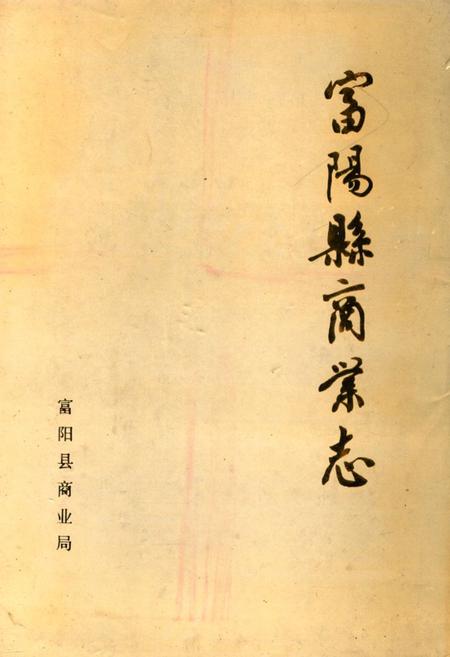 富陽縣商業志
富阳县商业局